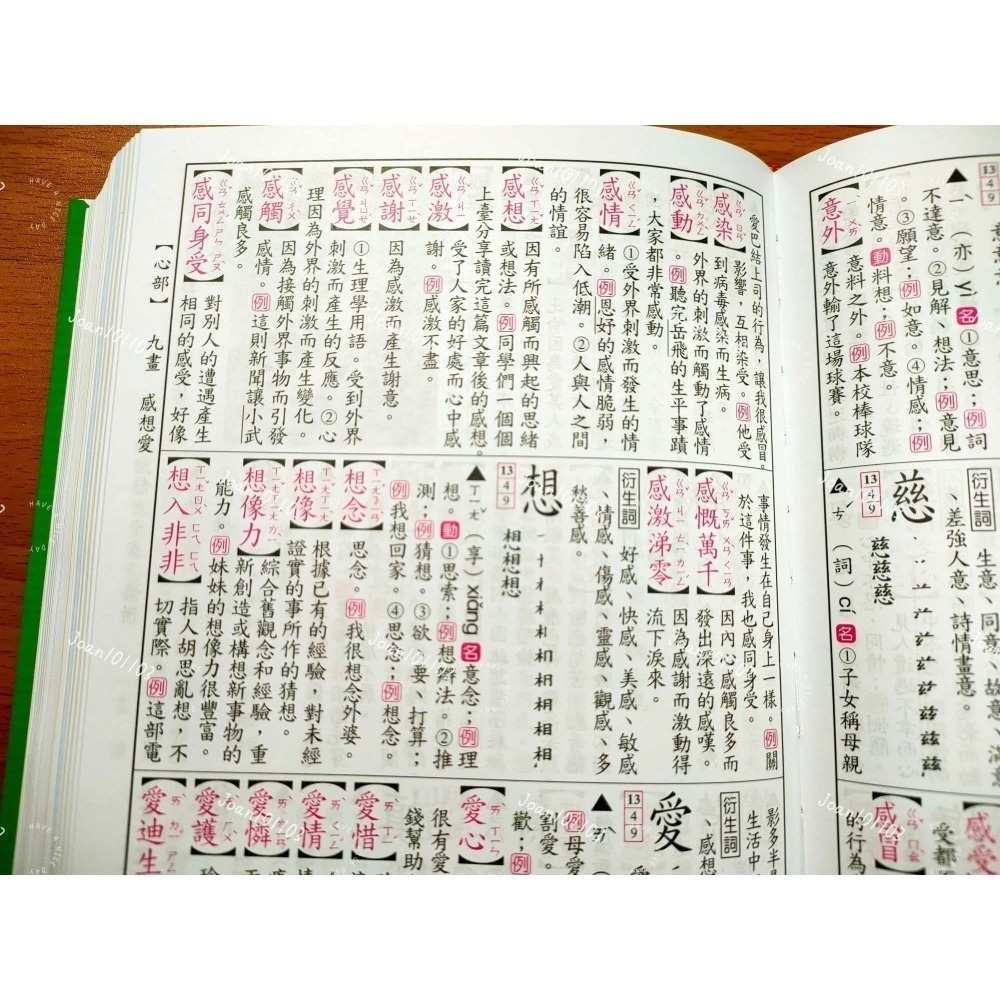 13
4
9
▲ㄧˋ(亦)yì 名①意思;例詞
不達意。②見解、想法;例意見
。③願望;例如意。④情感;例
情意。動料想;例不意。
【意外】意料之外。例本校棒球隊
意外輸了這場球賽。
、差強人意、詩情畫意。
慈
13
4
9
(詞)cí 名①子女稱母親
感受
感冒
愛巴結上司的行為,讓我很感冒。
【感染】影響,互相染受。例他受
到病毒感染而生病。
【感動】外界的刺激而觸動了感情
。例聽完岳飛的生平事蹟
,大家都非常感動。
【感情】①受外界刺激而發生的情
緒。例恩妤的感情脆弱,
很容易陷入低潮。②人與人之間
的情誼。
【感想】因有所感觸而興起的思緒
或想法。例同學們一個個
上臺分享讀完這篇文章後的感想。
【感激】受了人家的好處而心中感
謝。例感激不盡。
【感謝】因為感激而產生謝意。
【感覺】①生理學用語。受到外界
刺激而產生的反應。②心
理因為外界的刺激而產生變化。
【感觸】因為接觸外界事物而引發
感情。例這則新聞讓小武
感觸良多。
【感同身受】對別人的遭遇產生
相同的感受,好像
事情發生在自己身上一樣。例關
於這件事,我也感同身受。
【感慨萬千】因內心感觸良多而
發出深遠的感嘆。
【感激涕零】因為感謝而激動得
流下淚來。
衍生詞 好感、快感、美感、敏感
、情感、傷感、靈感、觀感、多
愁善感。
想
13
4
9
▲ㄒㄧㄤˇ(享)xiǎng 名意念;例理
想。動①思索;例想辦法。②推
測;例猜想。③欲、要、打算;
例我想回家。④思念;例想念。
【想念】思念。例我很想念外婆。
【想像】根據已有的經驗,對未經
證實的事所作的猜想。
【想像力】綜合舊觀念和經驗,重
新創造或構想新事物的
能力。例妹妹的想像力很豐富。
【想入非非】指人胡思亂想,不
切實際。例這部電
影多半
生活中
衍生詞
、感想
愛
13
4
9
▲ㄞˋ
例母愛
割愛。
歡;例
【愛心】
很有愛
錢幫助
【愛惜】
【愛情】
【愛憐】
【愛護】
【愛迪生
【心部】 九畫 感想愛
Joan101102
HAVE A NICE DAY